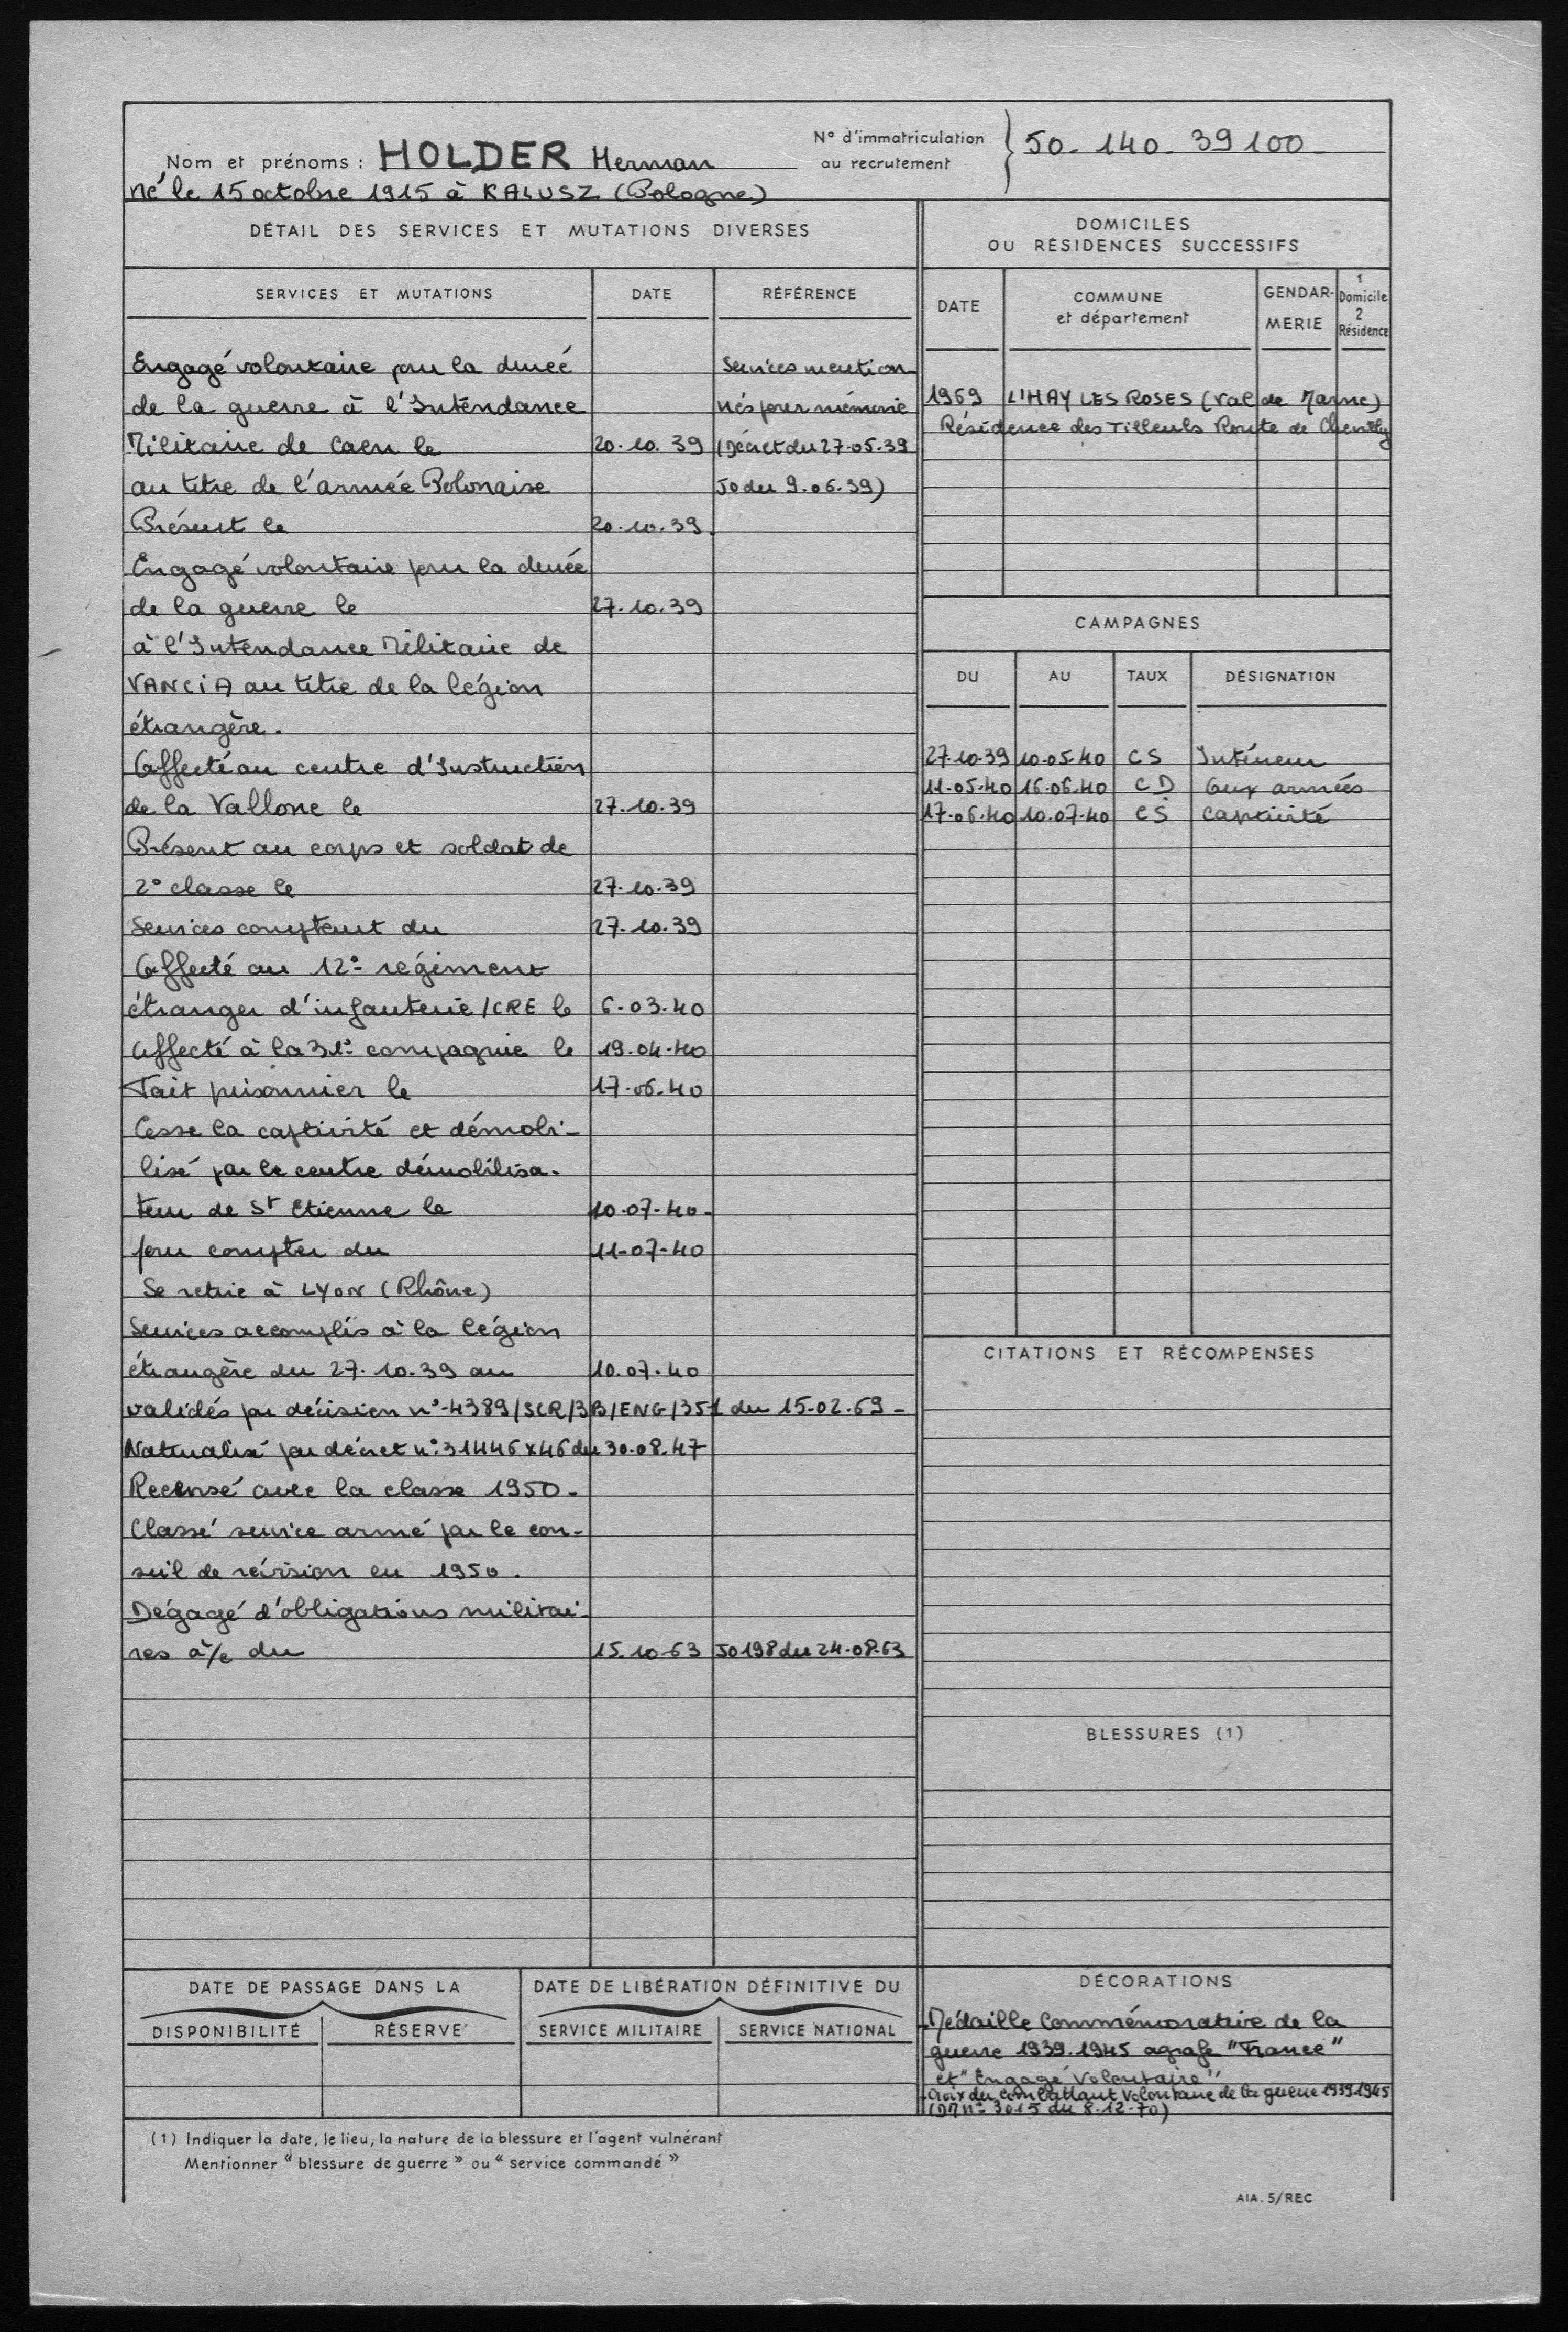 Nom et prénoms : HOLDER Herman
N° d'immatriculation au recrutement } 50. 140. 39100
Né le 15 octobre 1915 à KALUSZ (Pologne)
DÉTAIL DES SERVICES ET MUTATIONS DIVERSES
SERVICES ET MUTATIONS DATE RÉFÉRENCE
Engagé volontaire pour la durée Services mention-
de la guerre à l'Intendance nés pour mémoire
Militaire de Caen le 20.10.39 (Décret du 27-05.39
au titre de l'armée Polonaise JO du 9.06.39)
Présent le 20.10.39.
Engagé volontaire pour la durée
de la guerre le 27.10.39
à l'Intendance Militaire de
VANCIA au titre de la légion
étrangère.
Affecté au centre d'Instruction
de la Vallone le 27.10.39
Présent au corps et soldat de
2° classe le 27.10.39
Services comptent du 27.10.39
Affecté au 12° régiment
étranger d'infanterie /CRE le 6-03.40
Affecté à la 31° compagnie le 19.04.40
Fait prisonnier le 17.06.40
Cesse la captivité et démobi-
lisé par le centre démobilisa-
teur de St Etienne le 10.07.40.
pour compter du 11-07-40
Se retire à LYON (Rhône)
Services accomplis à la légion
étrangère du 27.10.39 au 10.07.40
validés par décision n°-4389/SCR/3B/ENG/351 du 15-02.69-
Naturalisé par décret n° 31446x46 du 30.08.47
Recensé avec la classe 1950-
Classé service armé par le con-
seil de révision en 1950.
Dégagé d'obligations militai-
res à/c du 15.10.63 JO 198 du 24-08.63
DOMICILES
OU RÉSIDENCES SUCCESSIFS
DATE COMMUNE et département GENDAR-MERIE 1 Domicile 2 Résidence
1969 L'HAY LES ROSES (Val de Marne)
Résidence des Tilleuls Route de Chevilly
CAMPAGNES
DU AU TAUX DÉSIGNATION
27.10.39 10.05.40 CS Intérieur
11.05.40 16.06.40 CD aux armées
17.06.40 10.07.40 CS captivité
CITATIONS ET RÉCOMPENSES
BLESSURES (1)
DATE DE PASSAGE DANS LA
DISPONIBILITÉ RÉSERVE
DATE DE LIBÉRATION DÉFINITIVE DU
SERVICE MILITAIRE SERVICE NATIONAL
DÉCORATIONS
-Médaille Commémorative de la
guerre 1939.1945 agrafe "France"
et "Engagé Volontaire"
-Croix du combattant volontaire de la guerre 1939.1945
(DM n° 3015 du 8.12.70)
(1) Indiquer la date, le lieu, la nature de la blessure et l'agent vulnérant
Mentionner « blessure de guerre » ou « service commandé »
AIA. 5/REC